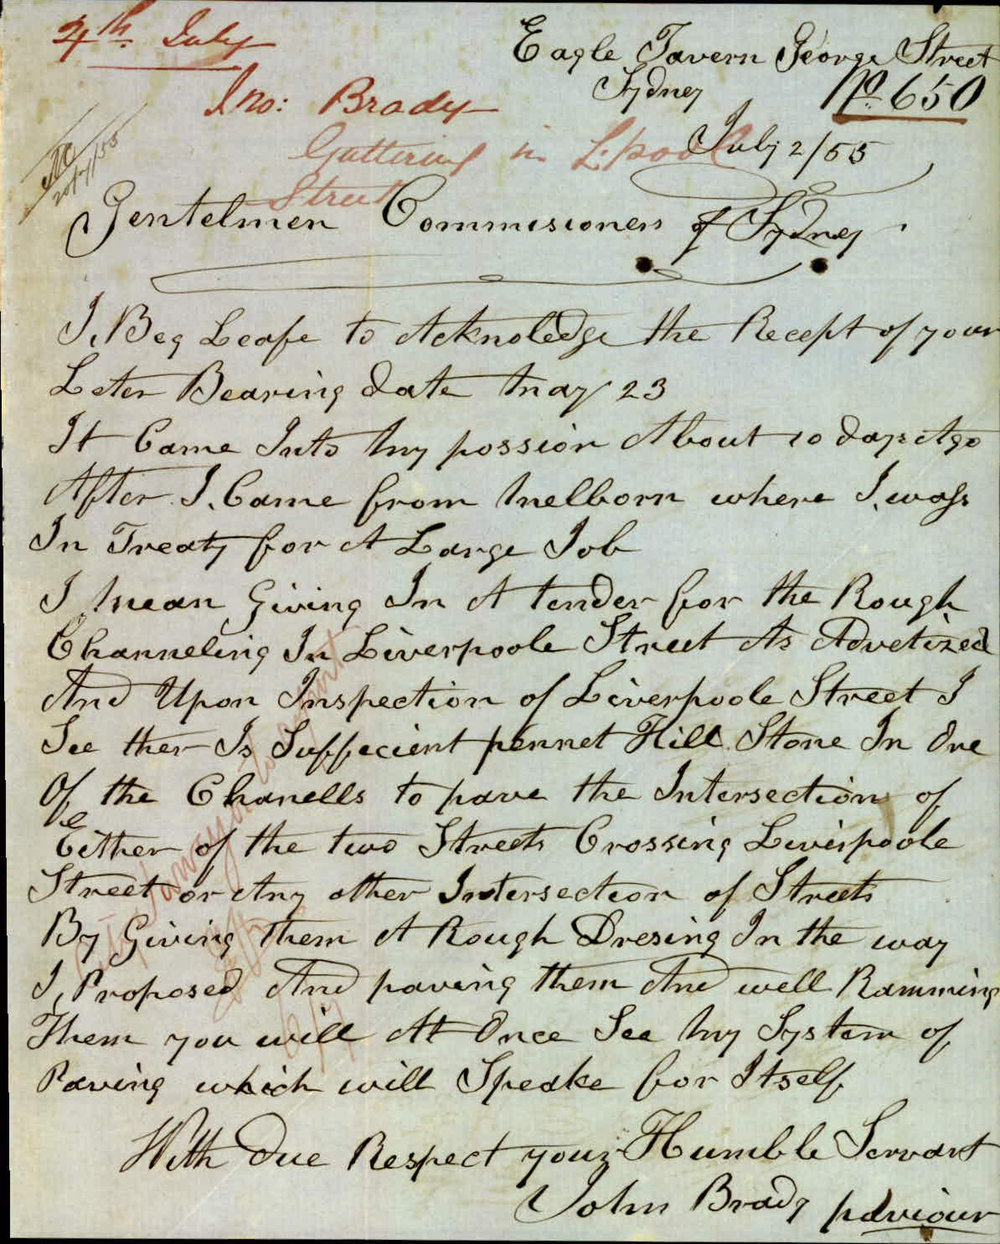 4th July
Eagle Tavern George Street
Sydney
No 650
Jno: Brady
July 2/55
Guttering in L.pool
Street
20/7/55
Gentelmen Commisioners of Sydney
I, Beg Leafe to Acknoledge the Recept of your
Leter Bearing date May 23
It Came Into My possion About 10 days Ago
After I, Came from Melborn where I, wass
In Treaty for A Large Job
I Mean Giving In A tender for the Rough
Channeling In Liverpoole Street As Advetized
And Upon Inspection of Liverpoole Street I
See ther Is Suffecient pennet Hill Stone In One
Of the Chanells to pave the Intersection of
Either of the two Streets Crossing Liverpoole
Street or Any other Intersection of Streets
By Giving them A Rough Dresing In the way
I, Proposed And paving them And well Ramming
Them you will At Once See My System of
Paving which will Speake for Itself
With due Respect your Humble Servant
John Brady paviour